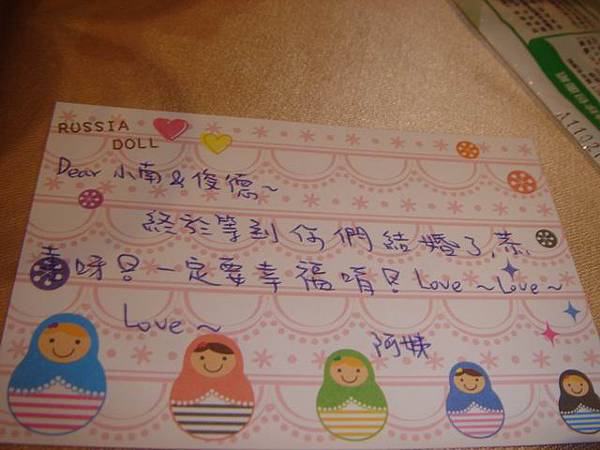 RUSSIA
DOLL
Dear 小南&俊德~
終於等到你們結婚了,恭
喜呀!一定要幸福唷!Love~Love~
Love~
阿姝